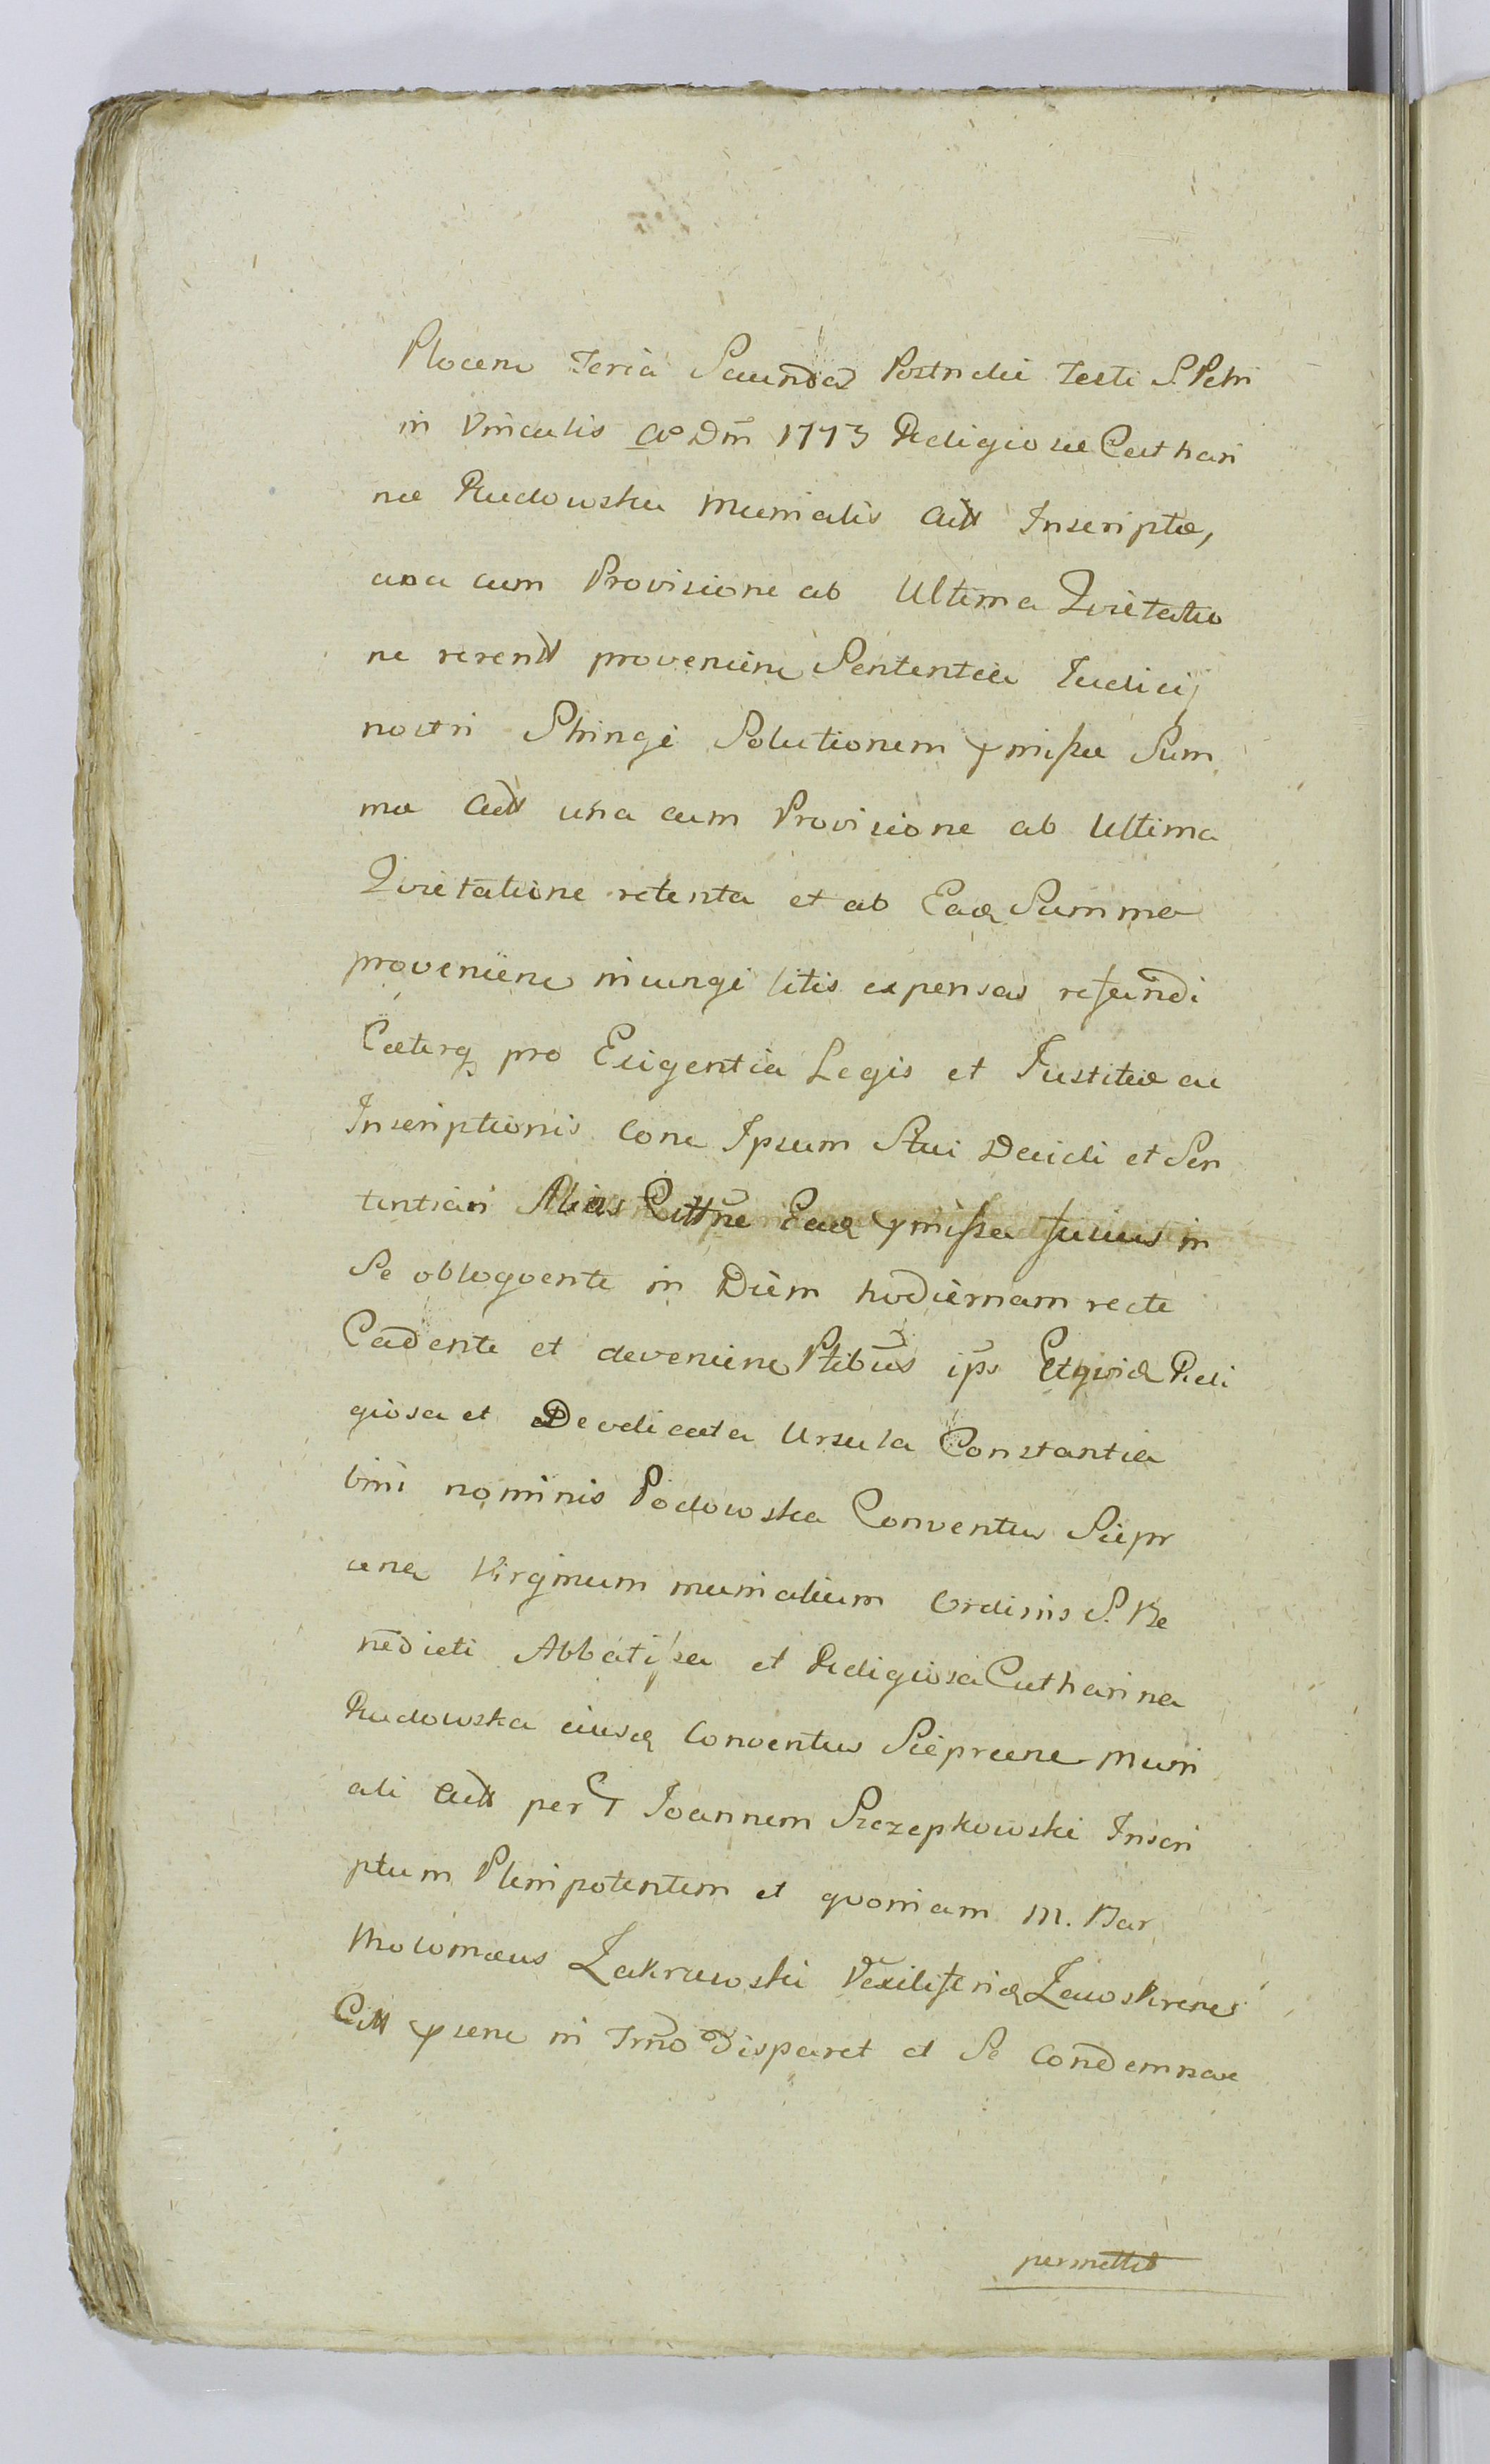 Plocen Feria Secunda Postridie Festi S. Petri
in Vinculis Ao Dni 1773 Religiosæ Cathari
næ Rudowska Monialis Actt Inscriptæ,
una cum Provisione ab Ultima Qvietatio
ne provenien Sententia Judicij
nostri Stringi Solutionem pmissæ Sum
mæ Actt una cum Provisione ab Ultima
Qvietatione retenta et ab Eadq Summa
provenien iniungi litis expensas refundi
Cæterq pro Exigentia Legis et Justitiæ ac
Inscriptionis Conc Ipsum Stui Decidi et Sen
tentiari Alias Cittne Eadq pmissa fusius in
Se obloqvente in Diem hodiernam recte
Cadente et devenien Ptibus ips Etqvidq Reli
giosa et Deodicata Ursula Constantia
bini nominis Podowska Conventus Siepr
cen Virginum monialium Ordinis S. Be
nedicti Abbatissa et Religiosa Catharina
Rudowska eiusdq Conventus Sieprcen Moni
ali Actt per G Joannem Szczepkowski Inscri
ptum Plenipotentem et qvoniam M. Bar
tholomæus Zakrzewski Vexiliferidq Zawskrenes
Citt psenc in Trno Disparet et Se Condemnare
permittit